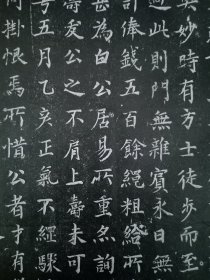 妙時有方士徒步而至
過此則門無雜賓永日無
計俸錢五百餘繩粗給所
甚為白公居易所重名詢
壽矣公之不肩上壽未可
号五月乙亥正氣不經驟
何掛恨焉所惜公者才有